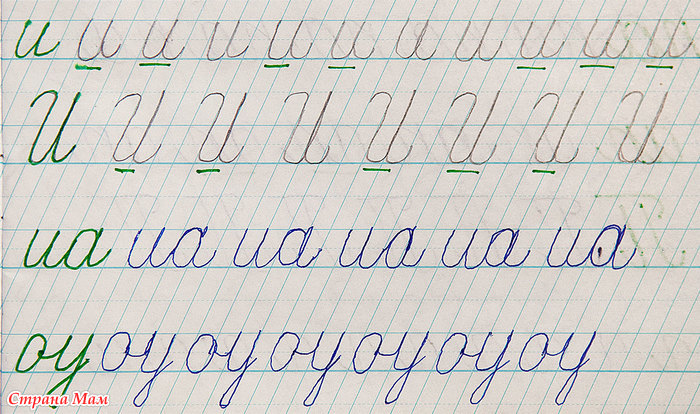 и и и и и и и и и и и
И И И И И И И И
иа иа иа иа иа иа
оу оу оу оу оу оу оу
Страна Мам